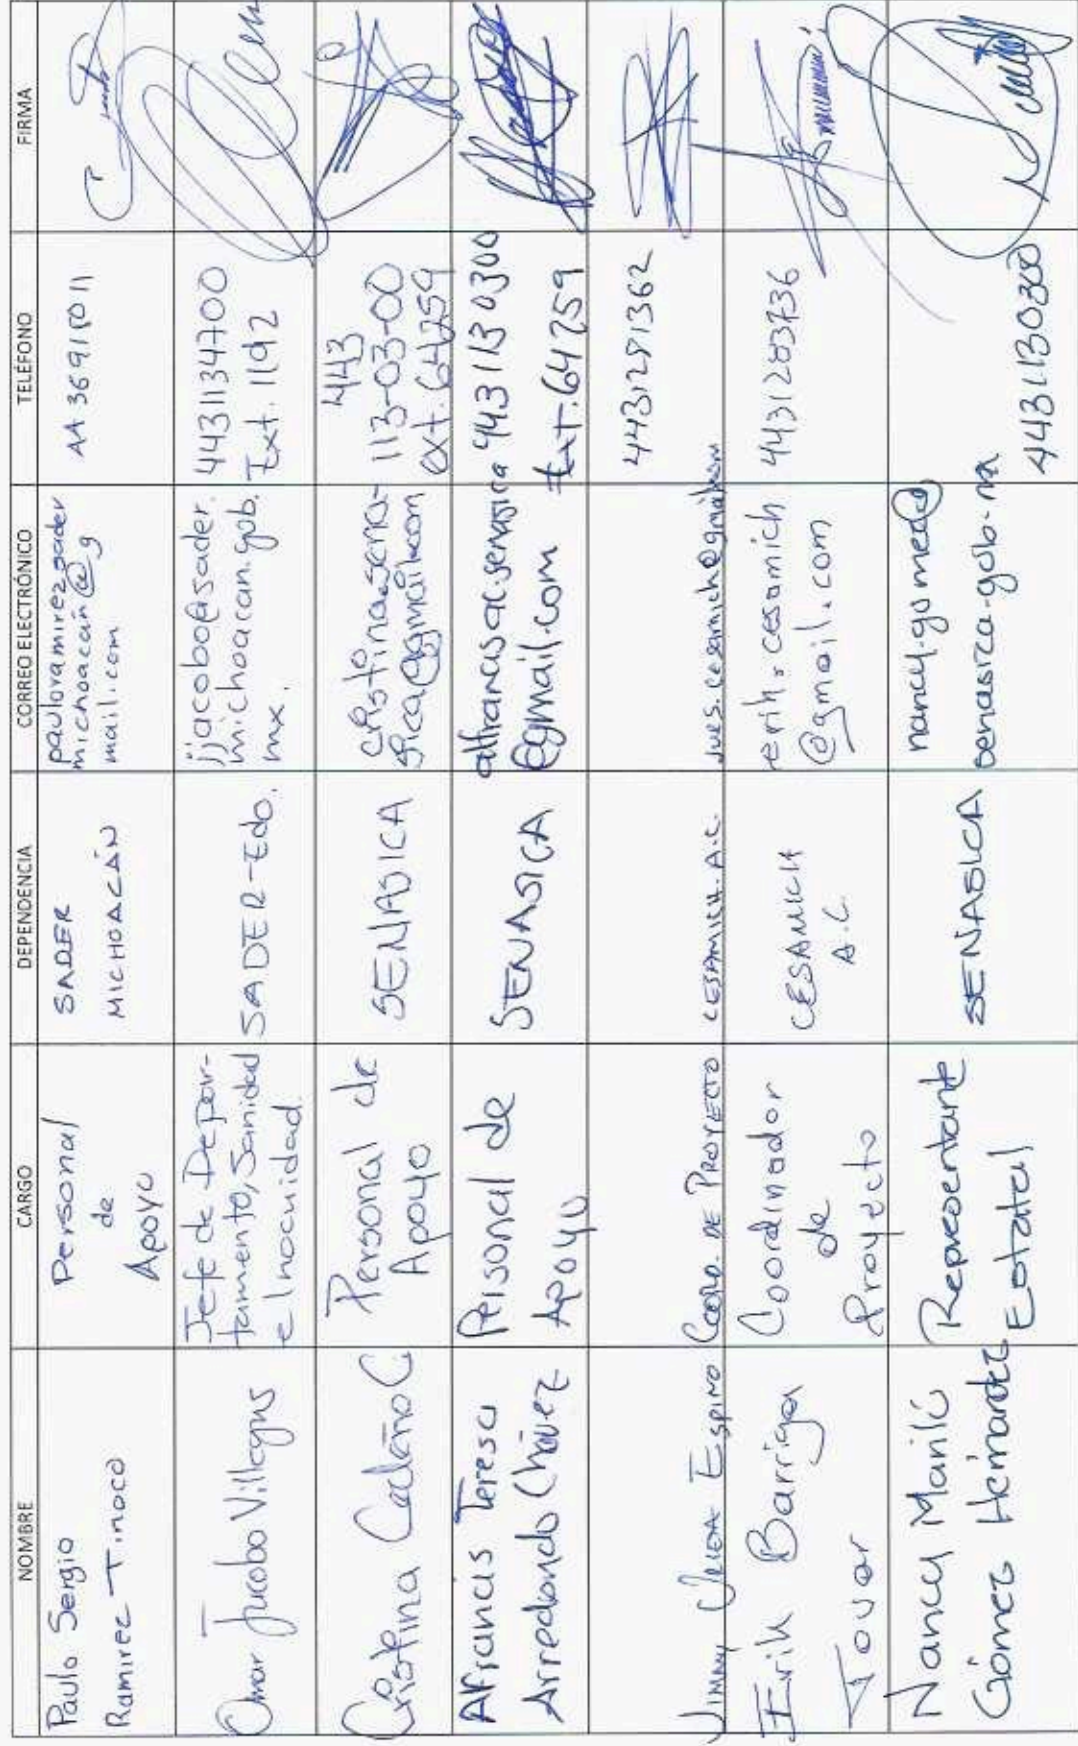 NOMBRE CARGO DEPENDENCIA CORREO ELECTRÓNICO TELÉFONO FIRMA
Paulo Sergio
Ramirez Tinoco
Personal
de
Apoyo
SADER
MICHOACÁN
pauloramirez.sader
michoacán@g
mail.com
Omar Jacobo Villegas
Jefe de Depar-
tamento, Sanidad
e Inocuidad.
SADER-Edo.
jjacobo@sader.
michoacan.gob.
mx.
4431134700
Ext. 1192
Cristina Cedeño C.
Personal de
Apoyo
SENASICA
cristina.sena-
sica@gmail.com
443
113-03-00
ext. 64259
Afrancis Teresa
Arredondo Chávez
Personal de
Apoyo
SENASICA
afrancisac.senasica
@gmail.com
443 113 0300
Ext. 64259
Jimmy Espino
Coord. DE PROYECTO
CESAMICH. A.C.
4431281362
Erik Barriga
Tovar
Coordinador
de
Proyecto
CESAMICH
A.C.
erik.cesamich
@gmail.com
4431283736
Nancy Marilú
Gómez Hernández
Representante
Estatal
SENASICA
nancy.gomez@
senasica.gob.mx
4431130300